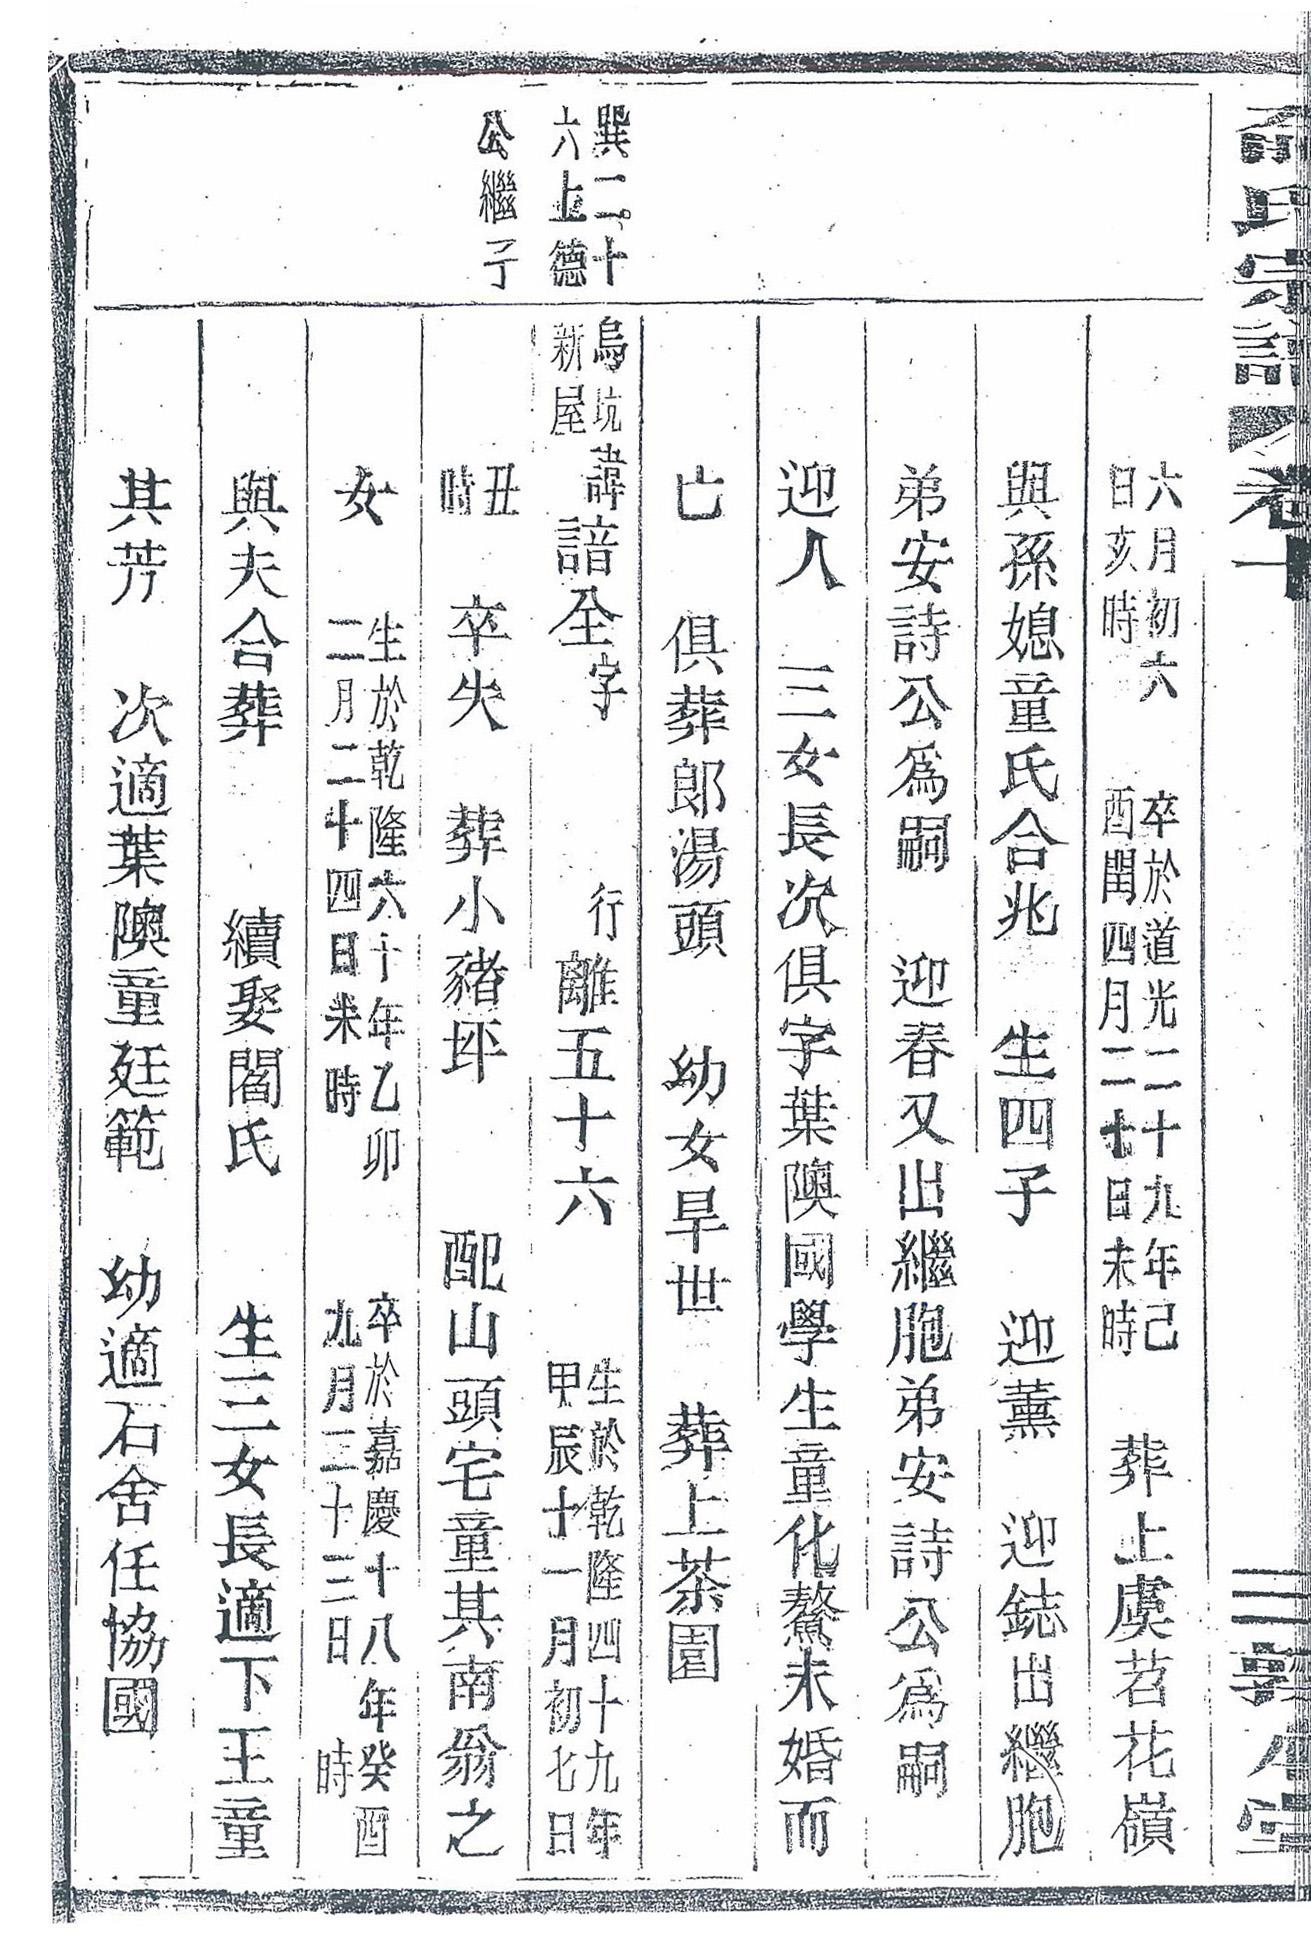 氏宗譜 卷十
六月初六
日亥時
卒於道光二十九年己
酉閏四月二十日未時
葬上虞苕花嶺
與孫媳童氏合兆 生四子 迎薰 迎鋕出繼胞
弟安詩公爲嗣 迎春又出繼胞弟安詩公爲嗣
迎人 三女長次俱字葉隩國學生童化鰲未婚而
亡 俱葬郎湯頭 幼女早世 葬上茶園
巽二十
六上德
公繼子
烏坑
新屋
諱諳全字 行離五十六
生於乾隆四十九年
甲辰十一月初七日
丑
時
卒失 葬小豬坪 配山頭宅童其南翁之
女
生於乾隆六十年乙卯
二月二十四日未時
卒於嘉慶十八年癸酉
九月二十三日 時
與夫合葬 續娶閻氏 生三女長適下王童
其芳 次適葉隩童廷範 幼適石舍任協國